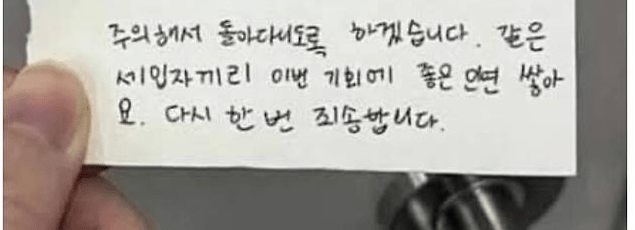 주의해서 돌아다니도록 하겠습니다. 같은
세입자끼리 이번 기회에 좋은 인연 쌓아
요. 다시 한 번 죄송합니다.